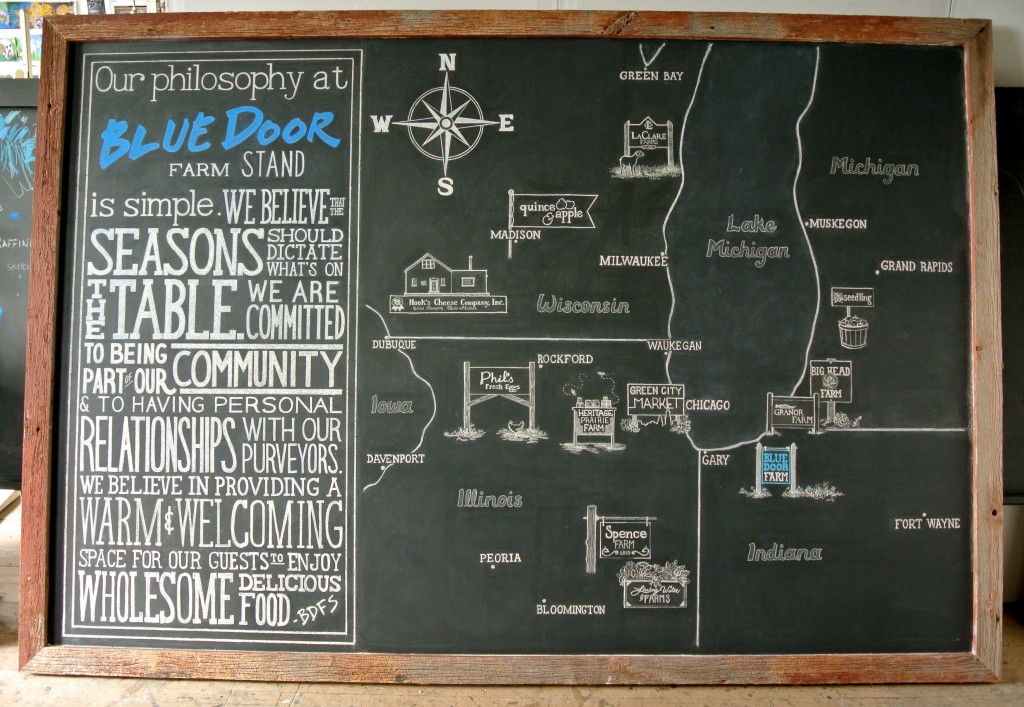 Our philosophy at
BLUE DOOR
FARM STAND
is simple. WE BELIEVE THAT THE
SEASONS SHOULD DICTATE WHAT'S ON
THE TABLE. WE ARE COMMITTED
TO BEING PART of OUR COMMUNITY
& TO HAVING PERSONAL
RELATIONSHIPS WITH OUR PURVEYORS.
WE BELIEVE IN PROVIDING A
WARM & WELCOMING
SPACE FOR OUR GUESTS TO ENJOY
WHOLESOME DELICIOUS FOOD. -BDFS
N
W E
S
GREEN BAY
LACLARE
FARMS
Michigan
quince & apple
MADISON
Lake
Michigan
MUSKEGON
MILWAUKEE
GRAND RAPIDS
Hook's Cheese Company, Inc.
Wisconsin
seedling
DUBUQUE
WAUKEGAN
ROCKFORD
Phil's
Fresh Eggs
HERITAGE
PRAIRIE
FARM
GREEN CITY
MARKET
CHICAGO
BIG HEAD
FARM
GRANOR
FARM
Iowa
DAVENPORT
GARY
BLUE
DOOR
FARM
Illinois
Spence
FARM
FORT WAYNE
Indiana
PEORIA
Living Water
FARMS
BLOOMINGTON